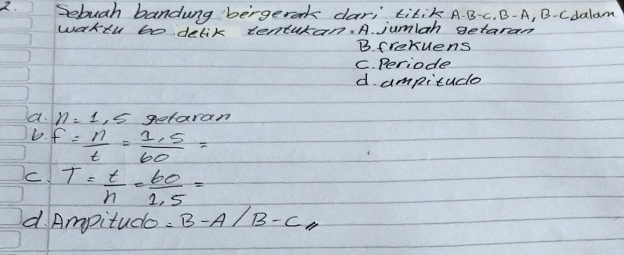 2. Sebuah bandung bergerak dari titik A-B-C, B-A, B-C dalam
waktu 60 detik tentukan. A. jumlah getaran
B. frekuens
C. Periode
d. ampitudo
a. n = 1,5 getaran
b. f = n/t = 1,5/60 =
c. T = t/n = 60/1,5 =
d. Ampitudo = B-A / B-C //